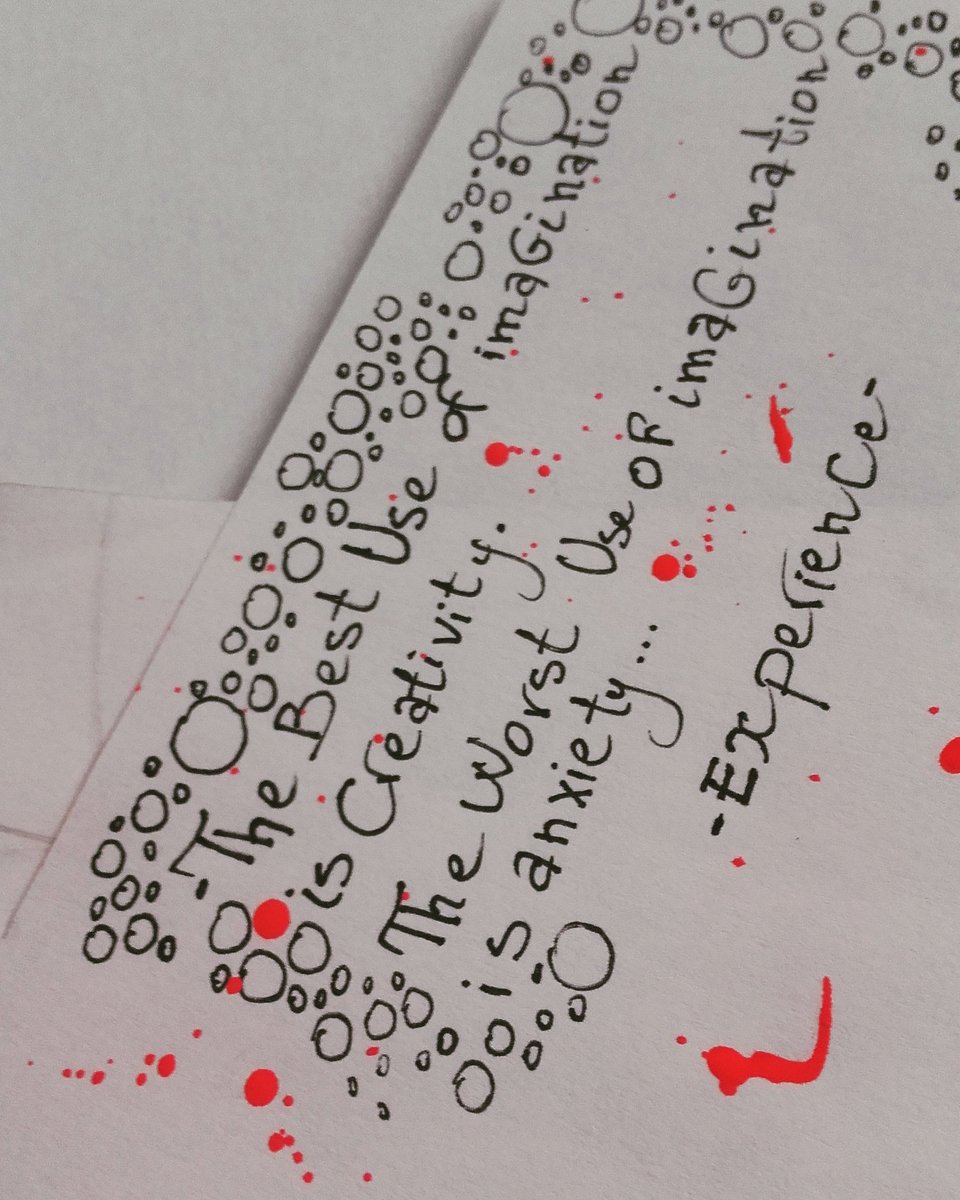 -The Best Use of imaGination
is Creativity.
The Worst Use of imaGination
is anxiety...
-Experience-